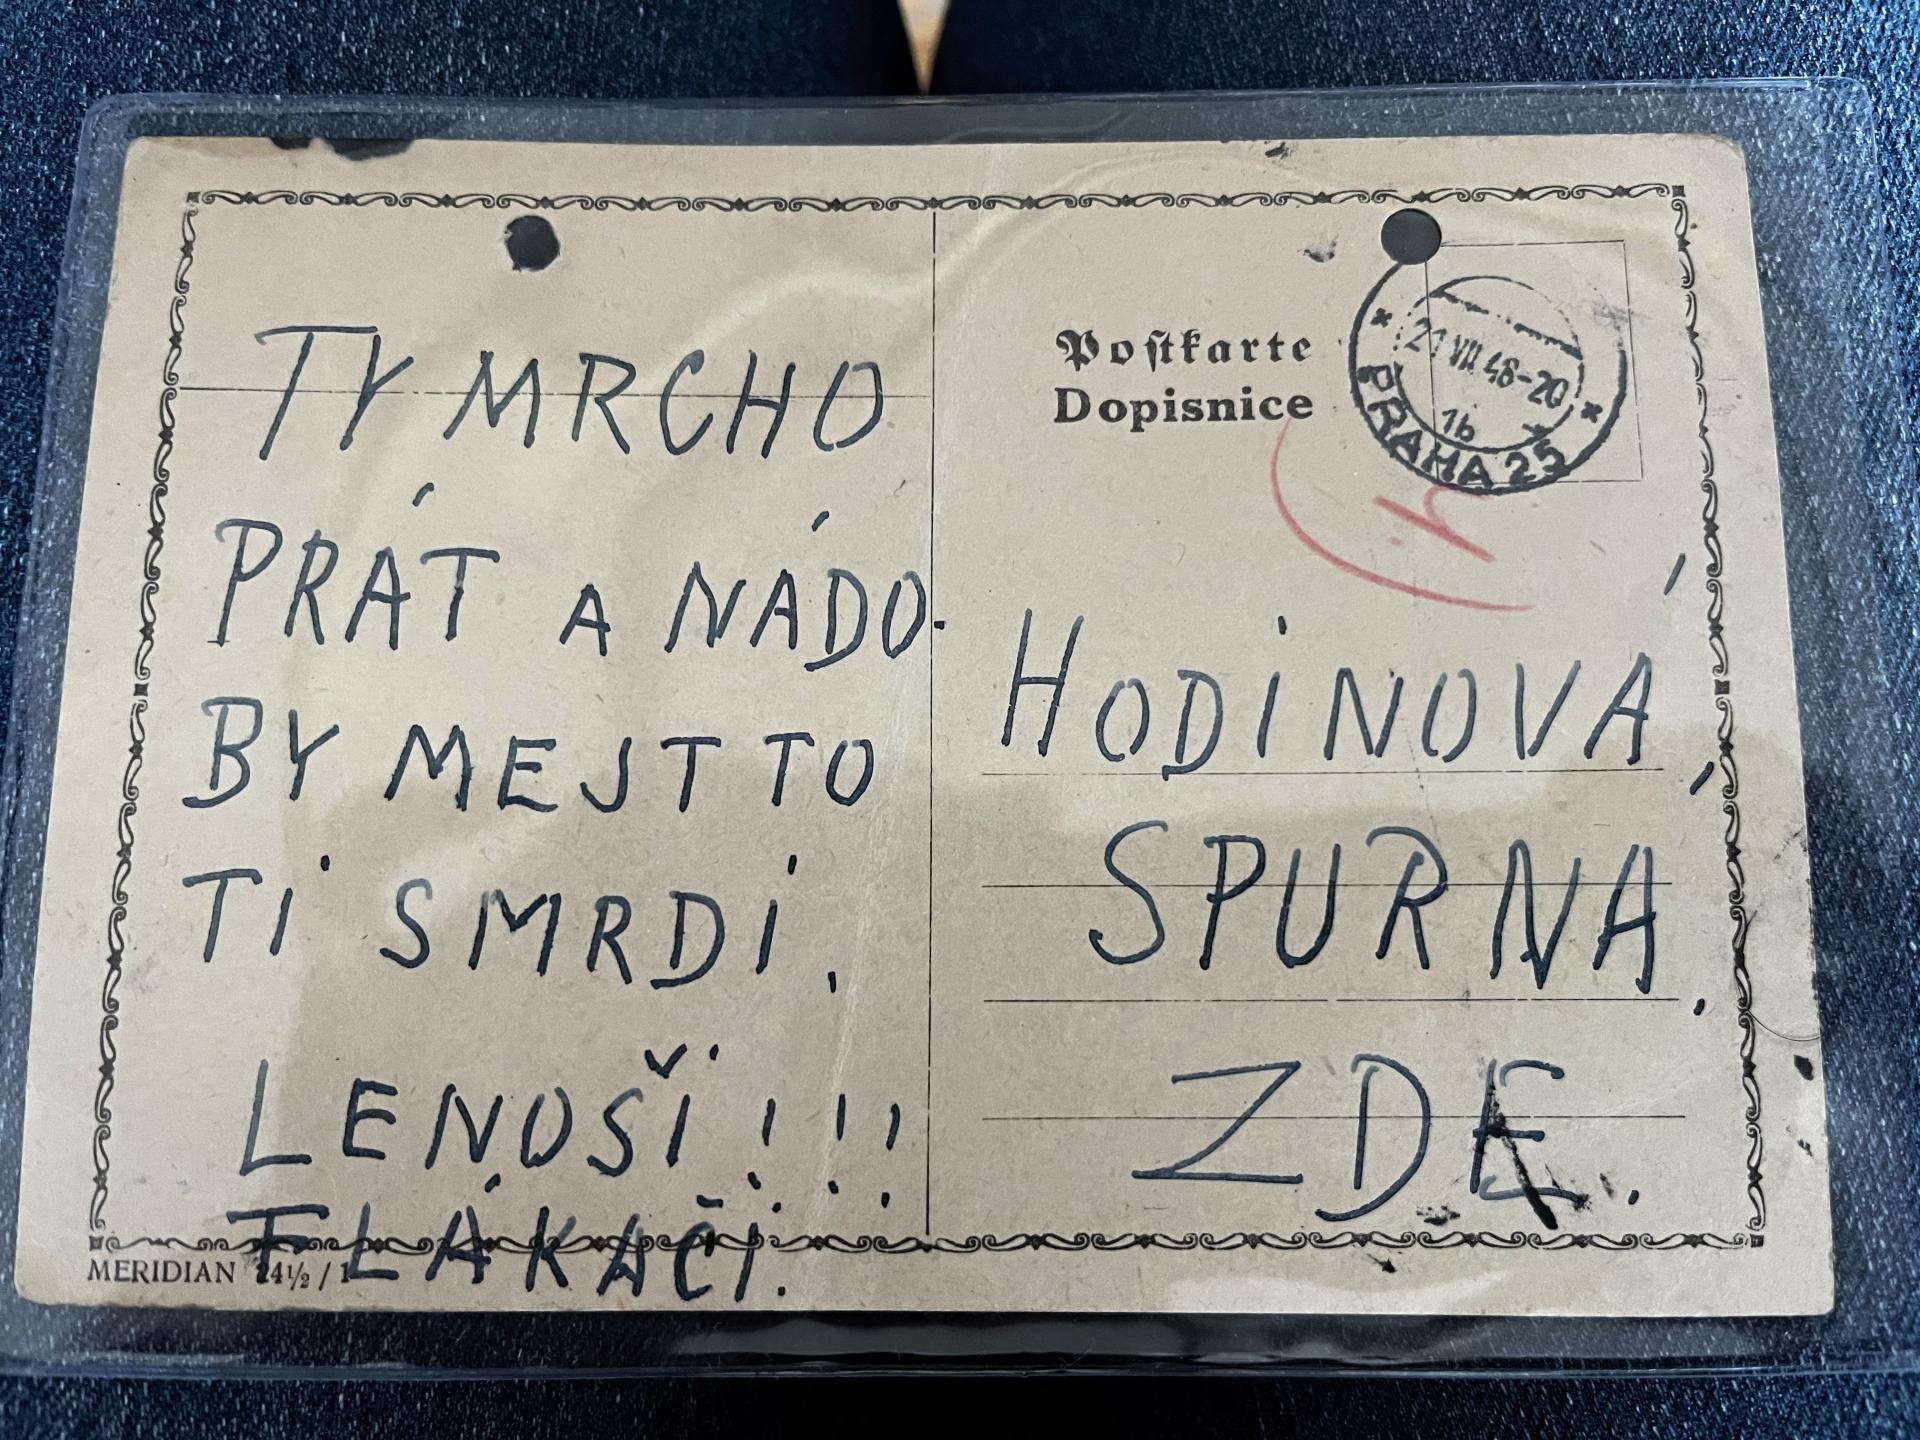 TY MRCHO
PRÁT A NÁDO-
BY MEJT TO
TI SMRDÍ,
LENOŠI!!!
FLÁKAČI.
MERIDIAN 24½ / 1
Postkarte
Dopisnice
21 VII 48-20
1b
PRAHA 25
HODINOVÁ,
SPURNÁ.
ZDE.